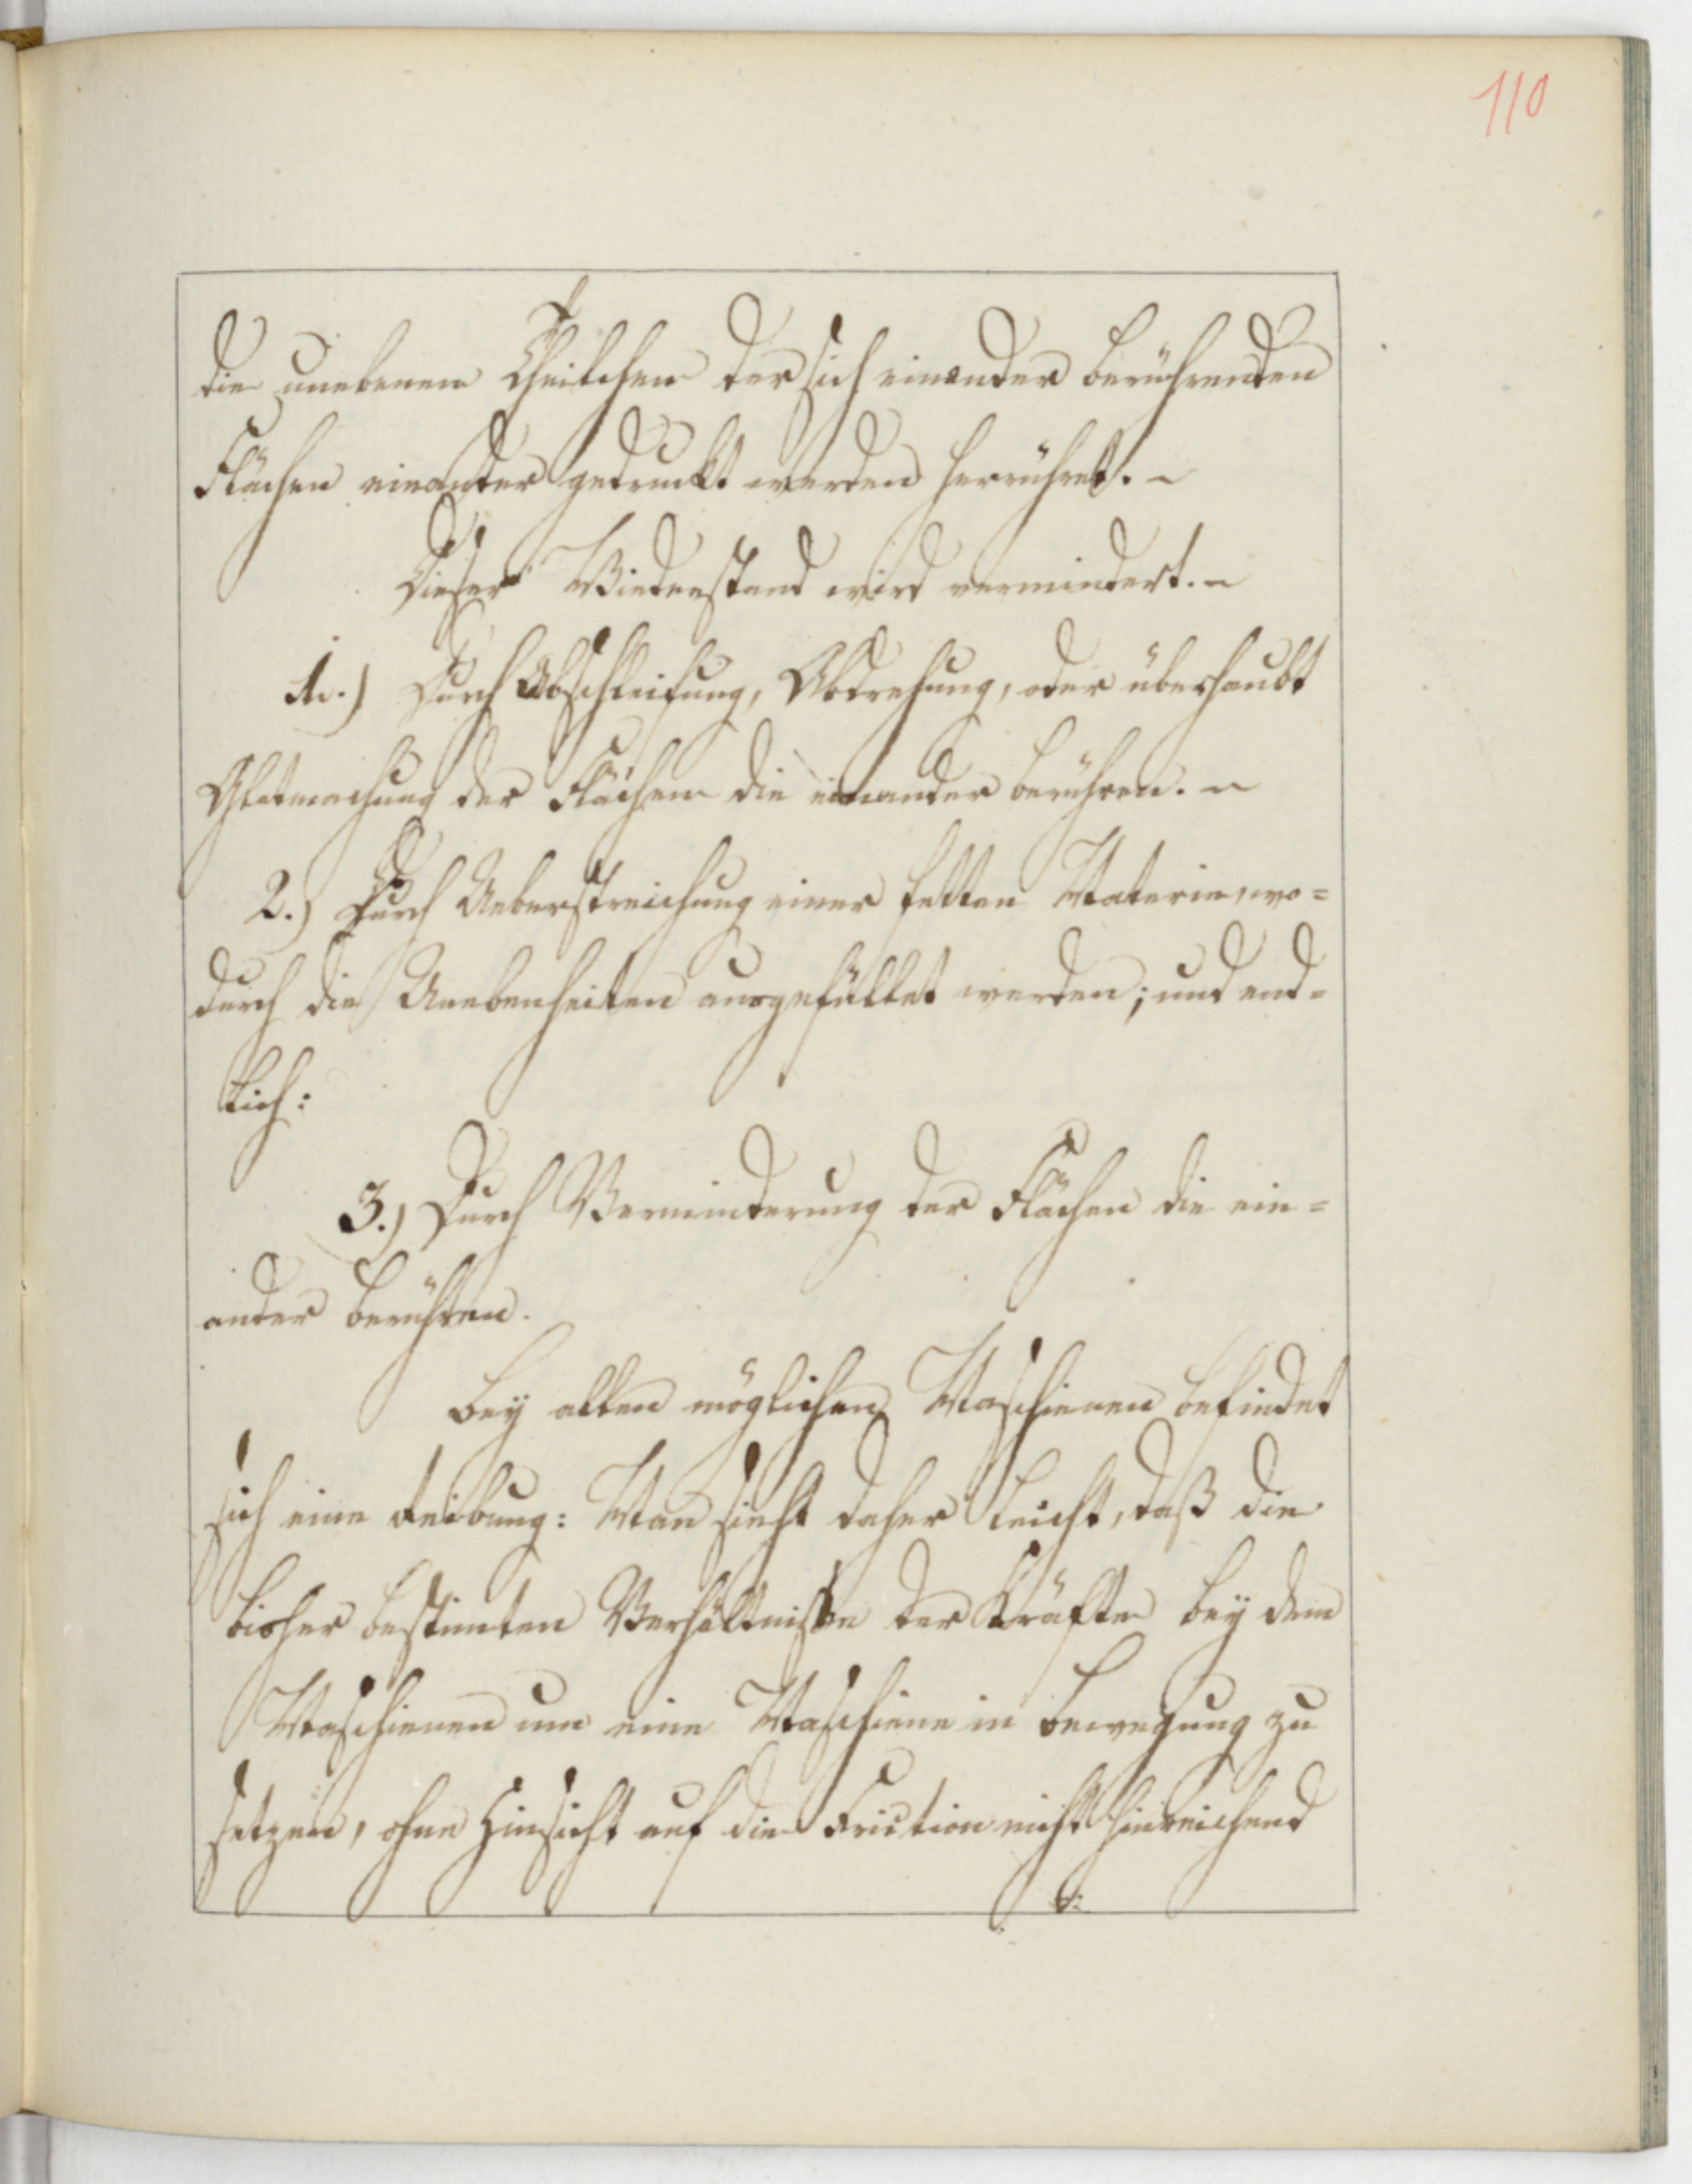 110
die unebenen Theilchen der sich einander berührenden
Flächen einander gedruckt werden herrühret. ~
Dieser Wiederstand wird vermindert. ~
1.) Durch Abschleifung, Abdrehung, oder überhaubt
Glatmachung der Flächen die einander berühren. ~
2.) Durch Ueberstreichung einer fetten Materie, wo=
durch die Unebenheiten ausgefüllet werden; und end=
lich:
3.) Durch Verminderung der Flächen die ein=
ander berühren.
Bey allen möglichen Maschienen befindet
sich eine Reibung: Man sieht daher leicht, daß die
bisher bestimten Verhältniße der Kräfte bey dem
Maschienen um eine Maschiene in bewegung zu
setzen, ohne Hinsicht auf die Friction nicht hinreichend